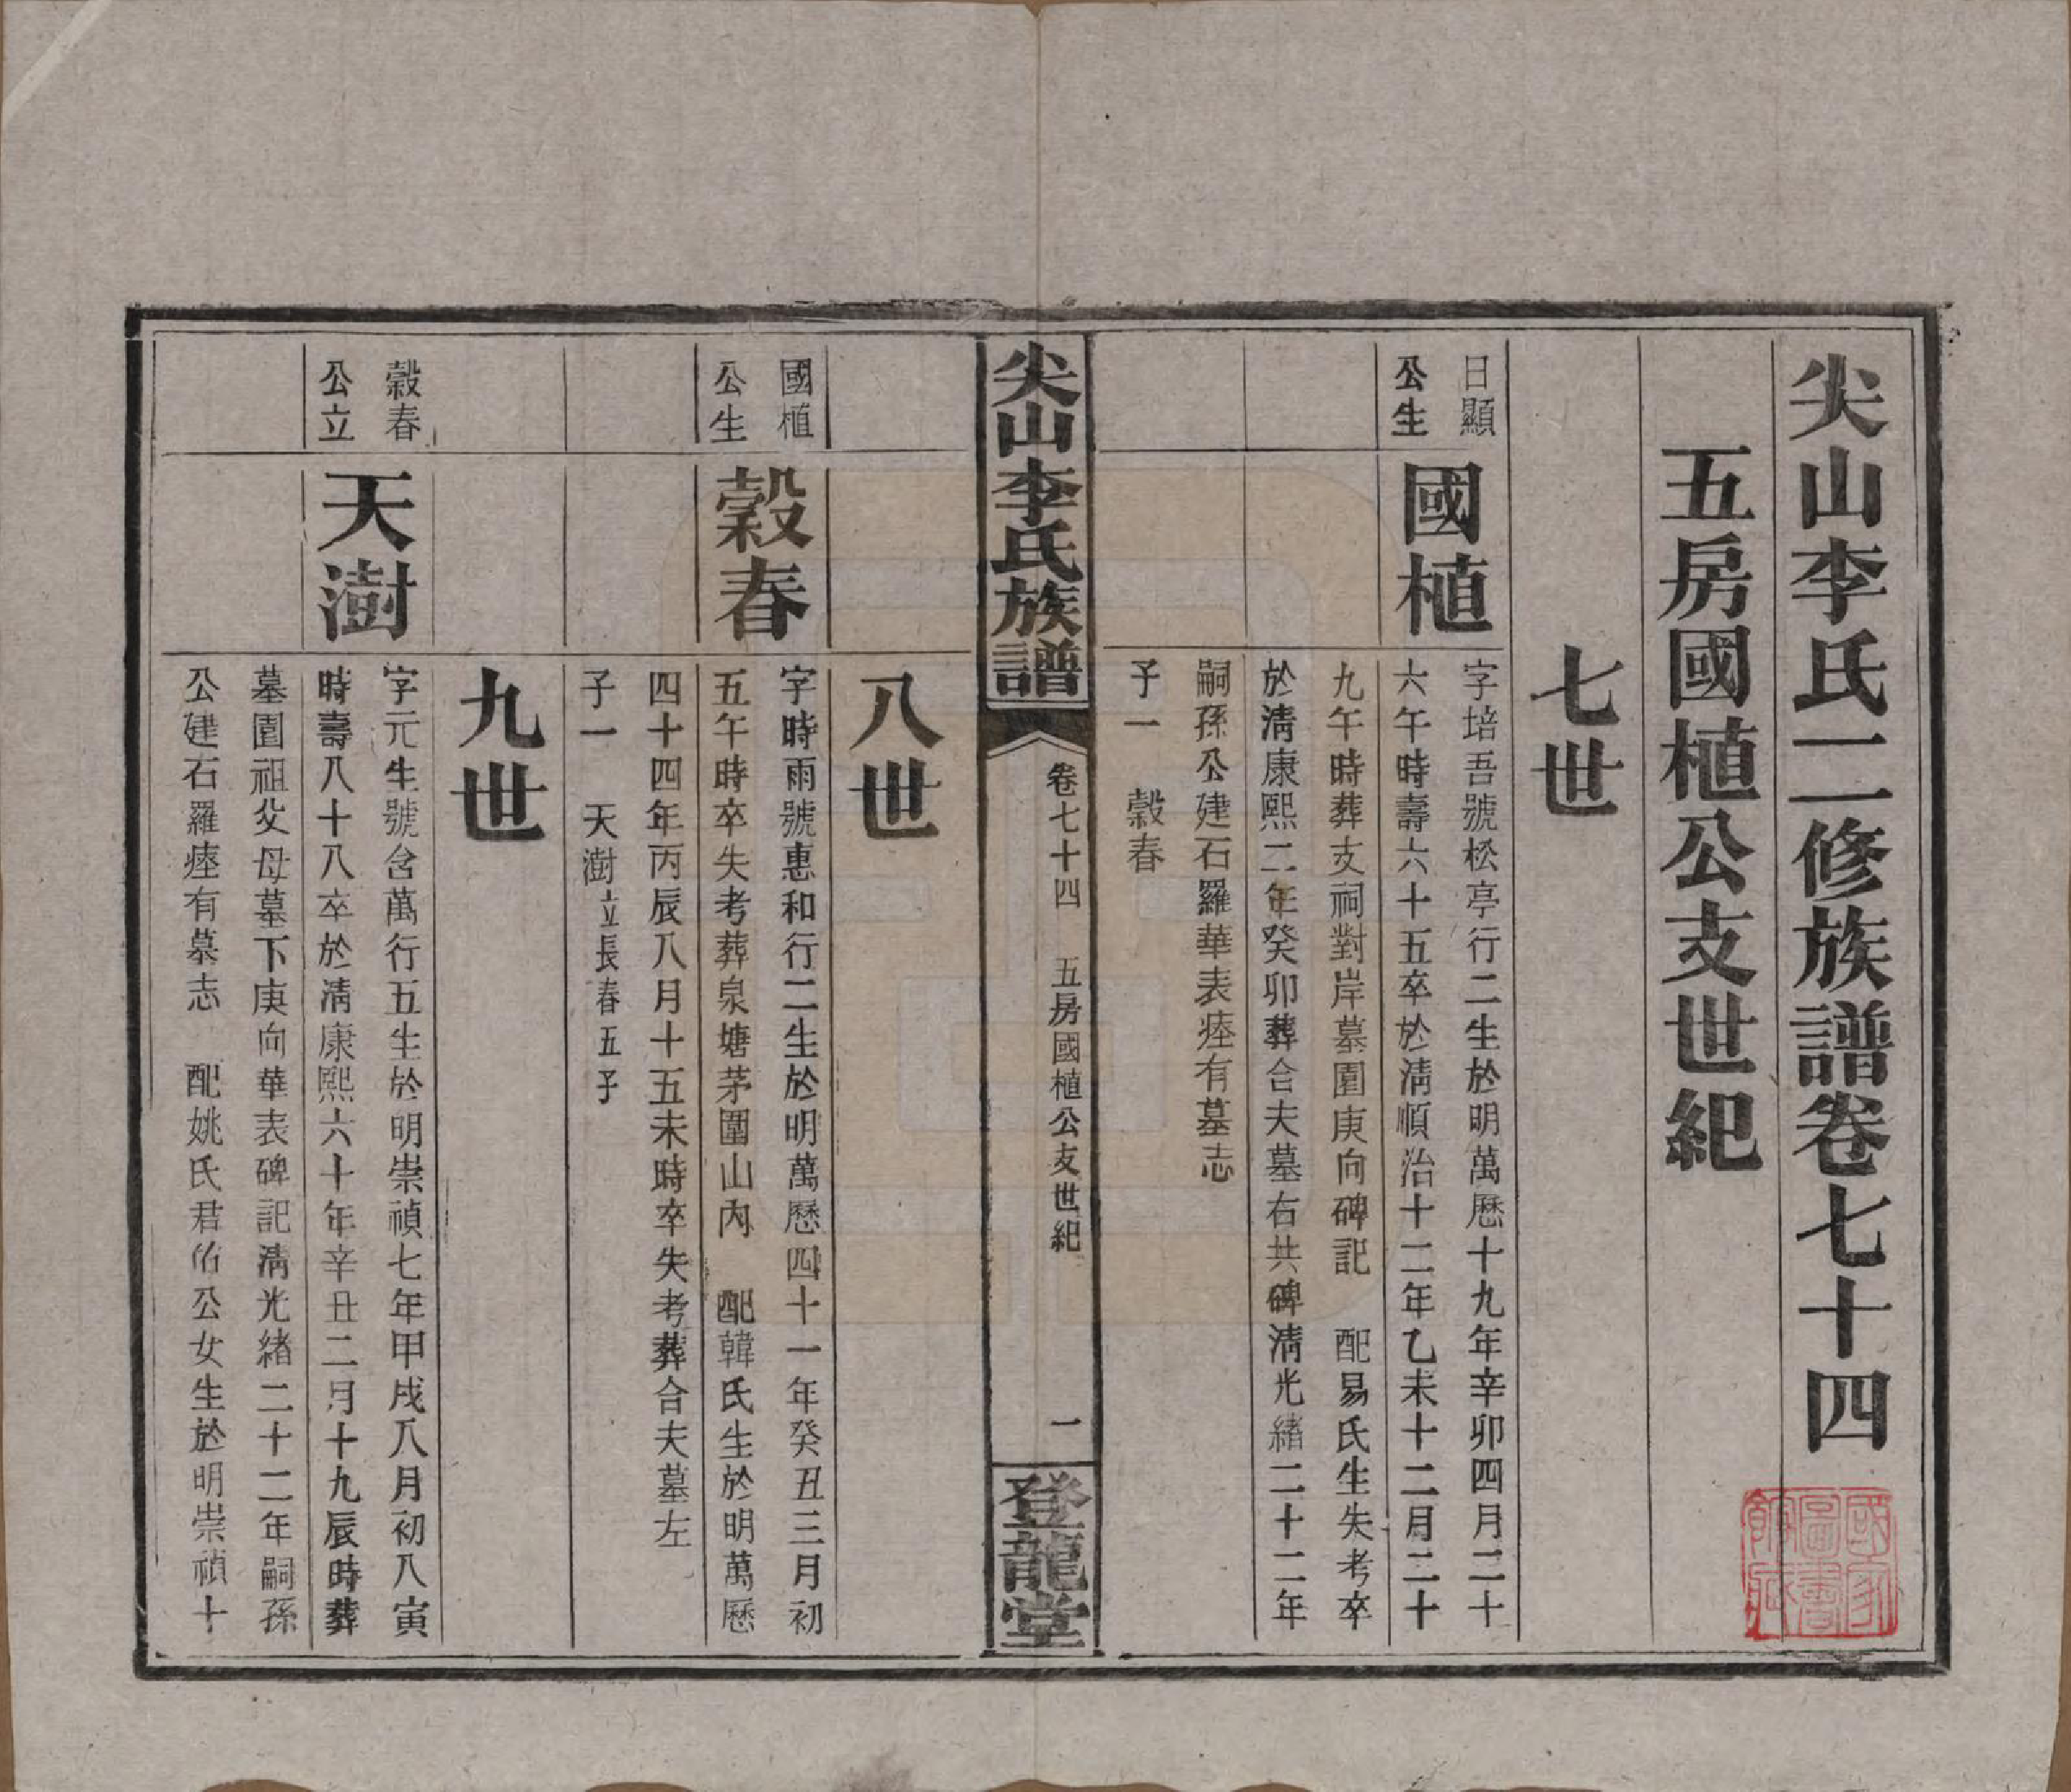 尖山李氏二修族譜卷七十四
五房國植公支世紀
七世
日顯
公生
國植
字培吾號松亭行二生於明萬曆十九年辛卯四月二十
六午時壽六十五卒於清順治十二年乙未十二月二十
九午時葬支祠對岸墓園庚向碑記　配易氏生失考卒
於清康熙二年癸卯葬合夫墓右共碑清光緒二十二年
嗣孫公建石羅華表瘞有墓志
子一　穀春
尖山李氏族譜
卷七十四　五房國植公支世紀
一
登龍堂
八世
國植
公生
穀春
字時雨號惠和行二生於明萬曆四十一年癸丑三月初
五午時卒失考葬泉塘茅園山內　配韓氏生於明萬曆
四十四年丙辰八月十五未時卒失考葬合夫墓左
子一　天澍立長春五子
九世
穀春
公立
天澍
字元生號含萬行五生於明崇禎七年甲戌八月初八寅
時壽八十八卒於清康熙六十年辛丑二月十九辰時葬
墓園祖父母墓下庚向華表碑記清光緒二十二年嗣孫
公建石羅瘞有墓志　配姚氏君佑公女生於明崇禎十
國家圖書館藏